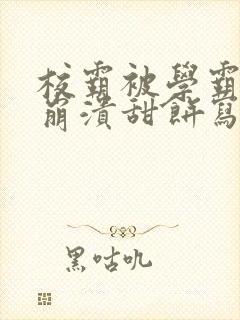 校霸被學霸
崩潰甜餅寫
黑咕吼